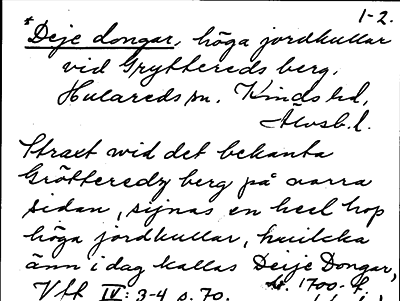 1-2.
*Deje dongar, höga jordkullar
vid Gryttereds berg,
Hulareds sn. Kinds hd,
Älvsb. l.
Straxt wid det bekanta
Grötteredz berg på norra
sidan, sijnas en heel hop
höga jordkullar, huilcka
änn i dag kallas Deije Dongar,
1700-t.
Vff IV: 3-4 s. 70.